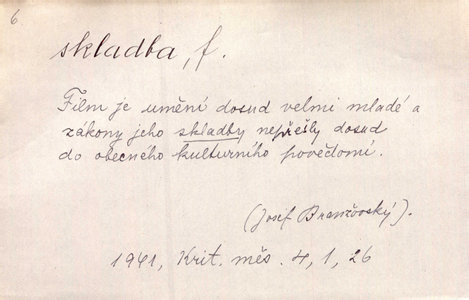 6
skladba, f.
Film je umění dosud velmi mladé a
zákony jeho skladby nepřešly dosud
do obecného kulturního povědomí.
(Josef Branžovský).
1941, Krit. měs. 4, 1, 26